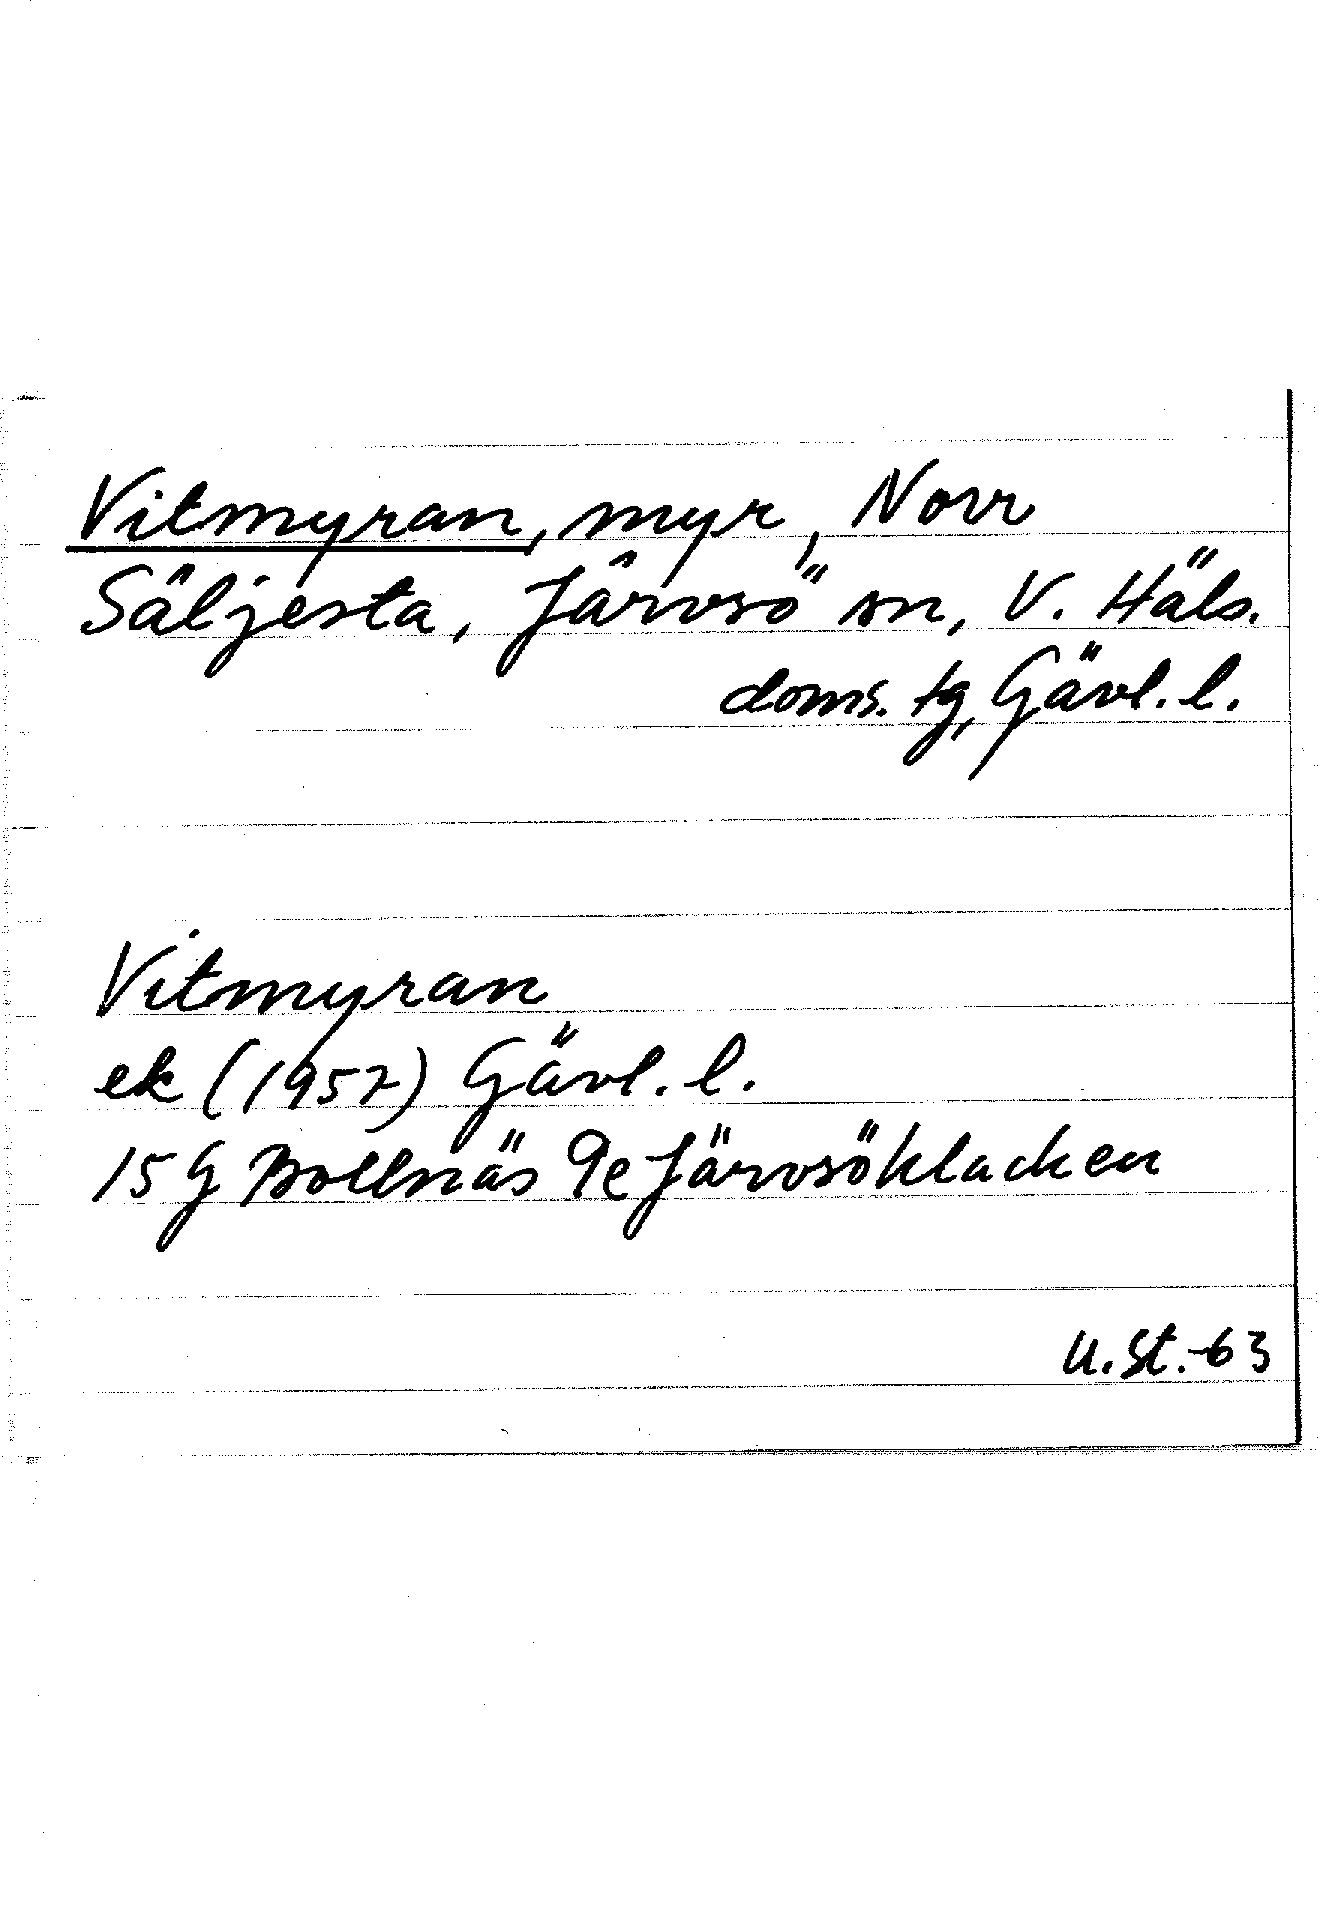 Vitmyran, myr, Norr
Säljesta, Järvsö sn, V. Häls.
doms. tg, Gävl. l.
Vitmyran
ek (1957) Gävl. l.
15 G Bollnäs 9e Järvsöklacken
U. St. -63